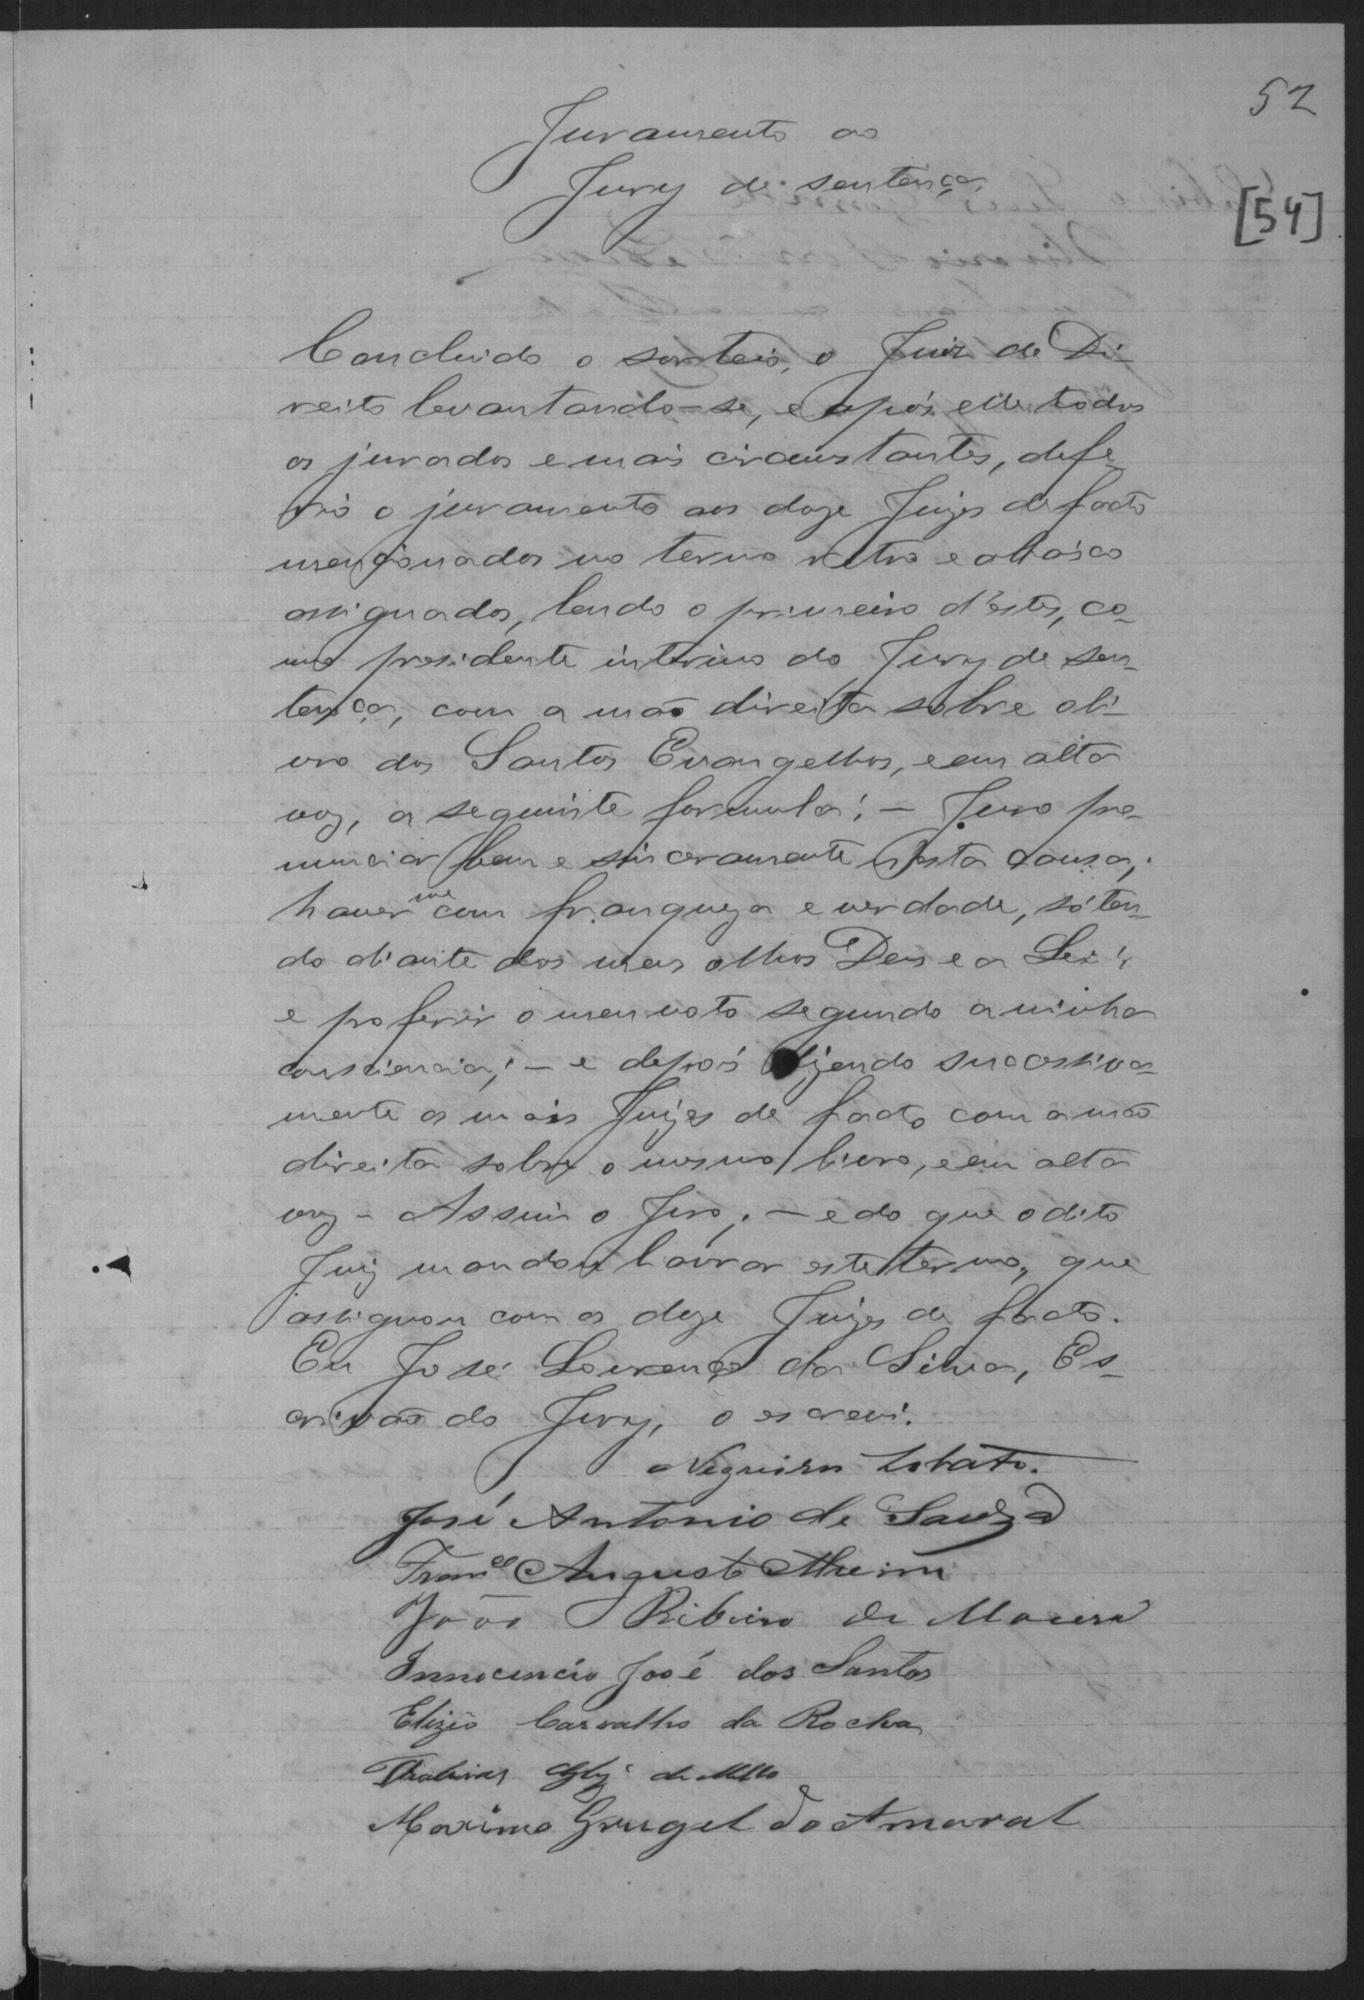 52
[54]
Juramento ao
Jury de sentença
Concluido o sorteio, o Juiz de Di-
reito levantando-se, e após elle todos
os jurados e mais circunstantes, defe-
rio o juramento aos doze Juizes de facto
mencionados no termo retro e abaixo
assignados, lendo o primeiro d'estes, co-
mo presidente interino do Jury de sen-
tença, com a mão direita sobre o li-
vro dos Santos Evangelhos, e em alta
voz, a seguinte formula: - Juro pro-
nunciar bem e sinceramente nesta causa;
haver me com franqueza e verdade, só ten-
do diante dos meus olhos Deus e a Lei;
e proferir o meu voto segundo a minha
consciencia; - e depois dizendo sucessiva-
mente os mais Juizes de facto com a mão
direita sobre o mesmo livro, e em alta
voz - Assim o Juro; - e do que o dito
Juiz mandou lavrar este termo, que
assignou com os doze Juizes de facto.
Eu José Lourenço da Silva, Es-
crivão do Jury, o escrevi.
Nogueira Lobato.
José Antonio de Souza
Fran.co Augusto
João Ribeiro de Moura
Innocencio José dos Santos
Elizio Carvalho da Rocha
de Mello
Maximo Grugel do Amaral